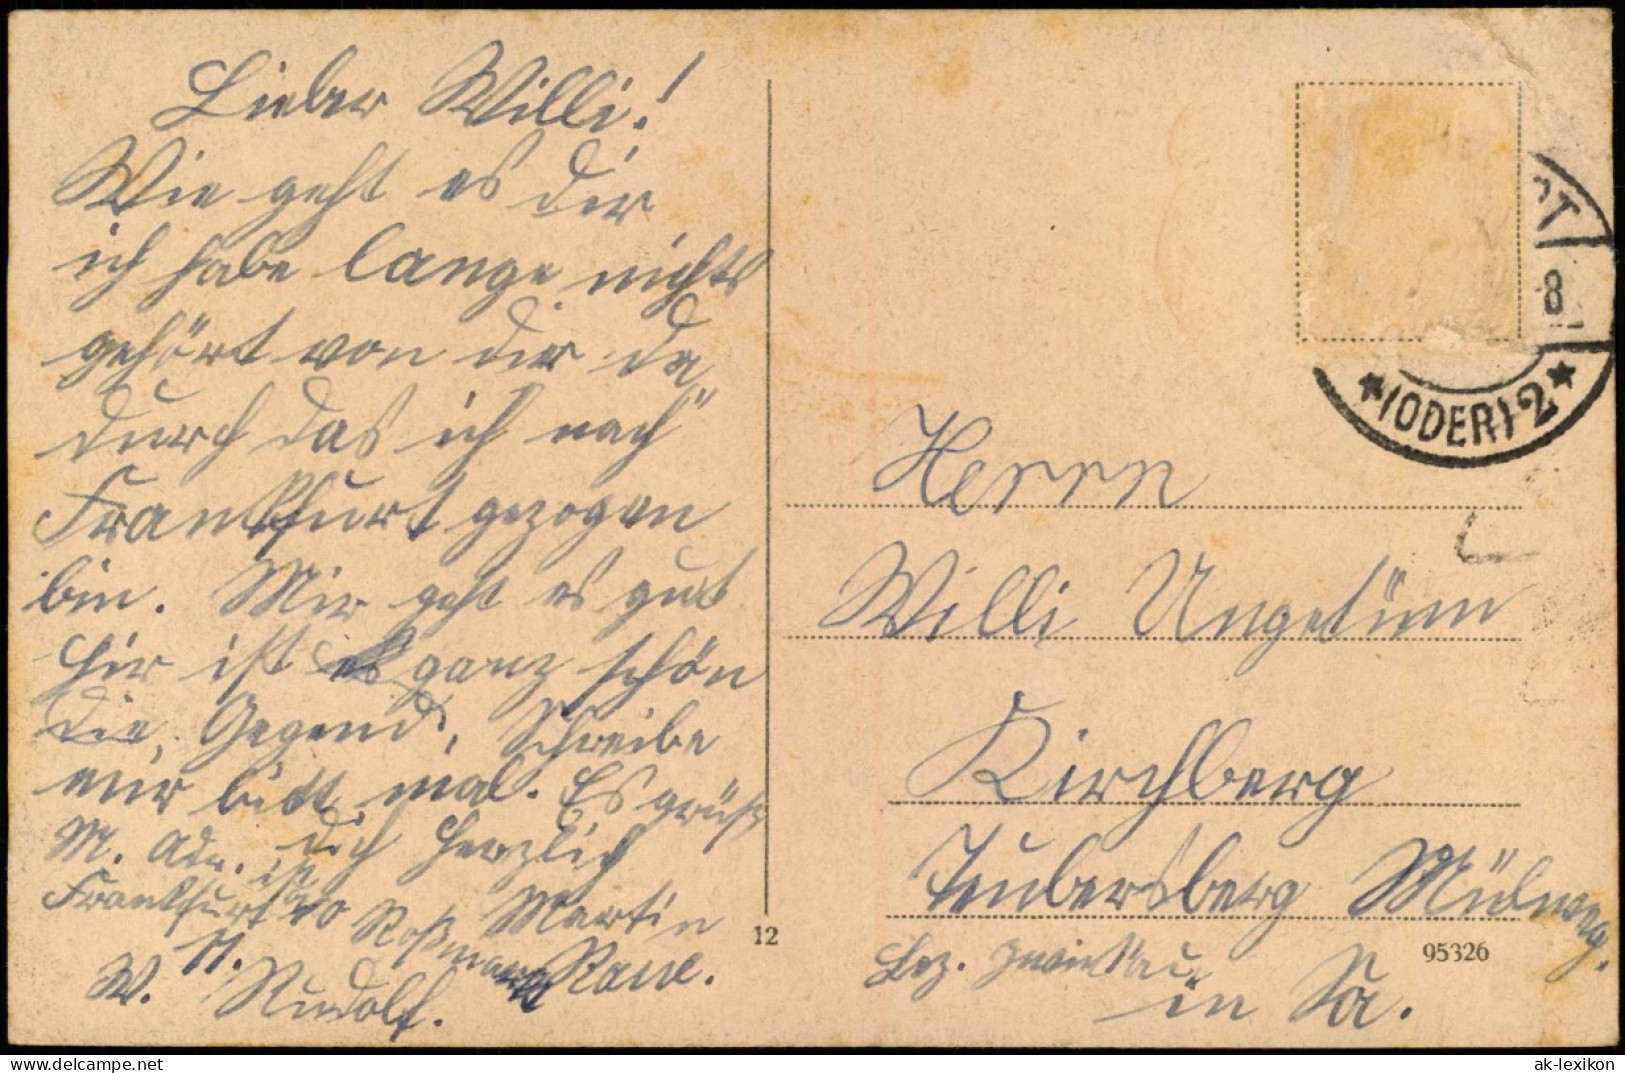 Lieber Willi!
Wie geht es dir
ich habe lange nichts
gehört von dir da
durch das ich nach
Frankfurt gezogen
bin. Mir geht es gut
hir ist es ganz schön
die Gegend, Schreibe
mir bitte mal. Es grüßt
dich herzlich
Martin
M. Adr. ist
Frankfurt a O
W. Rudolf.
12
RT
8
*(ODER) 2*
Herrn
Willi Ungetüm
Kirchberg
Leubersberg
Bez. Zwickau
in Sa.
95326
www.delcampe.net
ak-lexikon